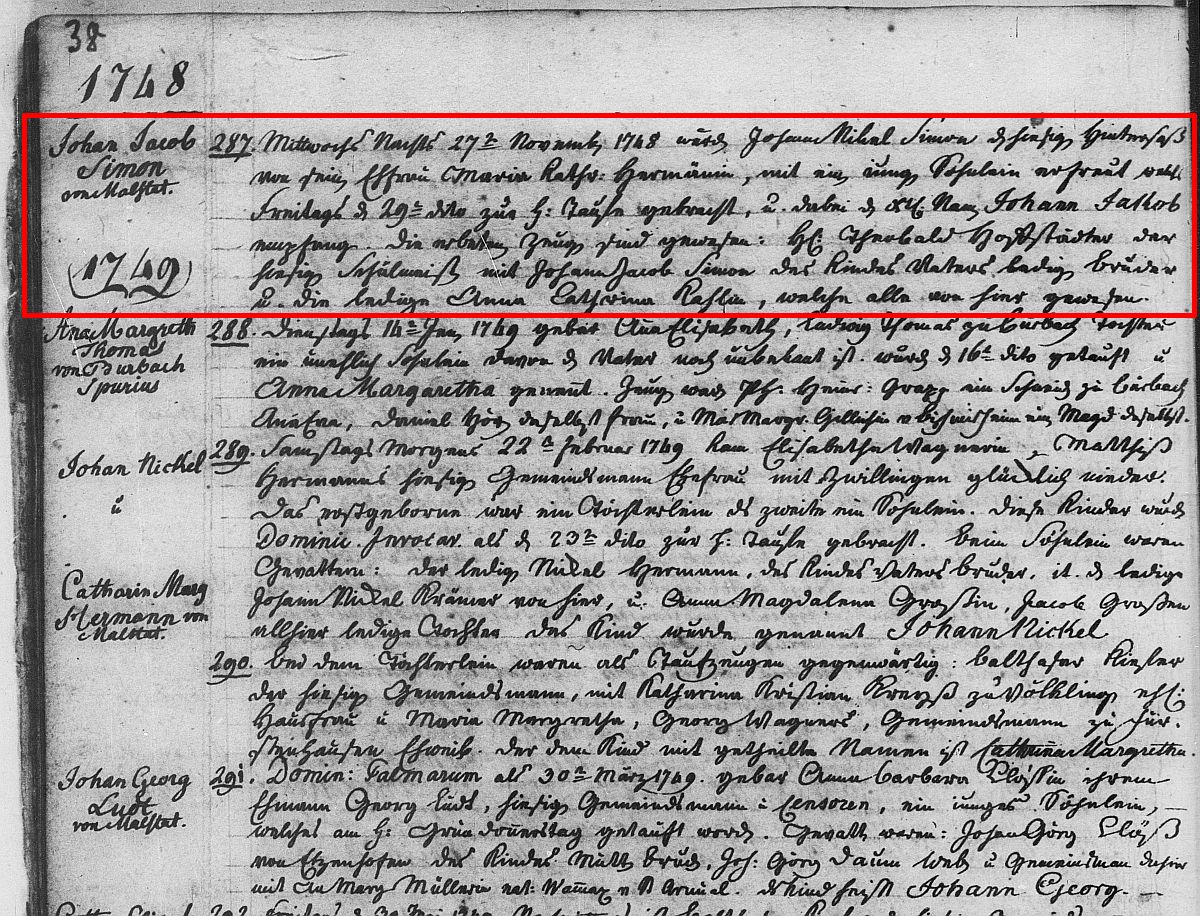 38
1748
Johan Jacob
Simon
von Malstat.
287. Mittwochs Nachts 27ten Novemb. 1748 wurd Johann Nikel Simon d. hiesig Hintersaß
von sein Ehfrau Maria Kathr: Hermännin, mit ein jung Söhnlein erfreut welch
Freitags d 29ten dito zur H: Taufe gebracht, u. dabei d Nam Johann Jakob
empfang. Die erbeten Zeug sind gewesen: H: Theobald Hoffstädter der
hiesig Schulmeist mit Johann Jacob Simon des Kindes Vaters ledig bruder
u. die ledige Anna Cathrina, welche alle von hier gewesen.
(1749)
Ana Margreth
Thomas
von Burbach
Spurius
288. Dienstags 14ten Jen. 1749 gebar Ana Elisabeth, Ludwig Thomas zu Burbach Tochter
ein unehlich davon d Vater noch unbekant ist. wurd d 16t dito getauft u
Anna Margaretha genent. Zeug war Ph: Henr: ein Schmid zu
Daniel daselbst Frau, u Mar Margr. v Bischmisheim ein Magd daselbst.
Johan Nickel
u
Catharin Marg
Hermann von
Malstat.
289. Samstags Morgens 22ten Februar 1749 kam Elisabetha Wagnerin, Matthiß
Hermanns hiesig Gemeindsmann Ehefrau mit Zwillingen glücklich nieder.
Das erstgeborne war ein Töchterlein ds zweite ein Söhnlein. Diese Kinder wurd
Dominic. Invocav. als d 23ten dito zur H: Taufe gebracht. beim Söhnlein waren
Gevattern: der ledig Nickel Hermann, des Kindes Vaters bruder, it. d ledige
Johann Nickel Krämer von hier, u. Anna Magdalena Großin, Jacob Großen
allhier ledige Tochter das Kind wurde genannt Johann Nickel
290. bei dem Töchterlein waren als Taufzeugen gegenwärtig: balthasar Kiefer
der hiesig Gemeindsmann, mit Katharina Kristian zu Völkling ehl:
Hausfrau u Maria Margretha, Georg Wagners, Gemeindsmann zu Für-
stenhausen Eheweib. der dem Kind mit getheilte Namen ist Catharina Margretha.
Johan Georg
Ludt
von Malstat.
291. Domin: Palmarum als 30ten März 1749. gebar Anna barbara Clößin ihrem
Ehmann Georg Ludt, hiesig Gemeindsmann u Censoren, ein junges Söhnlein,
welches am H: Gründonnerstag getauft word. Gevatt waren: Johan Görg Clöß
von Etzenhofen des Kindes Mutt brud, Joh: Görg Daum Web u Gemeindsman dahier
mit An Marg Müllerin v St Arnual. ds Kind heist Johann Georg.